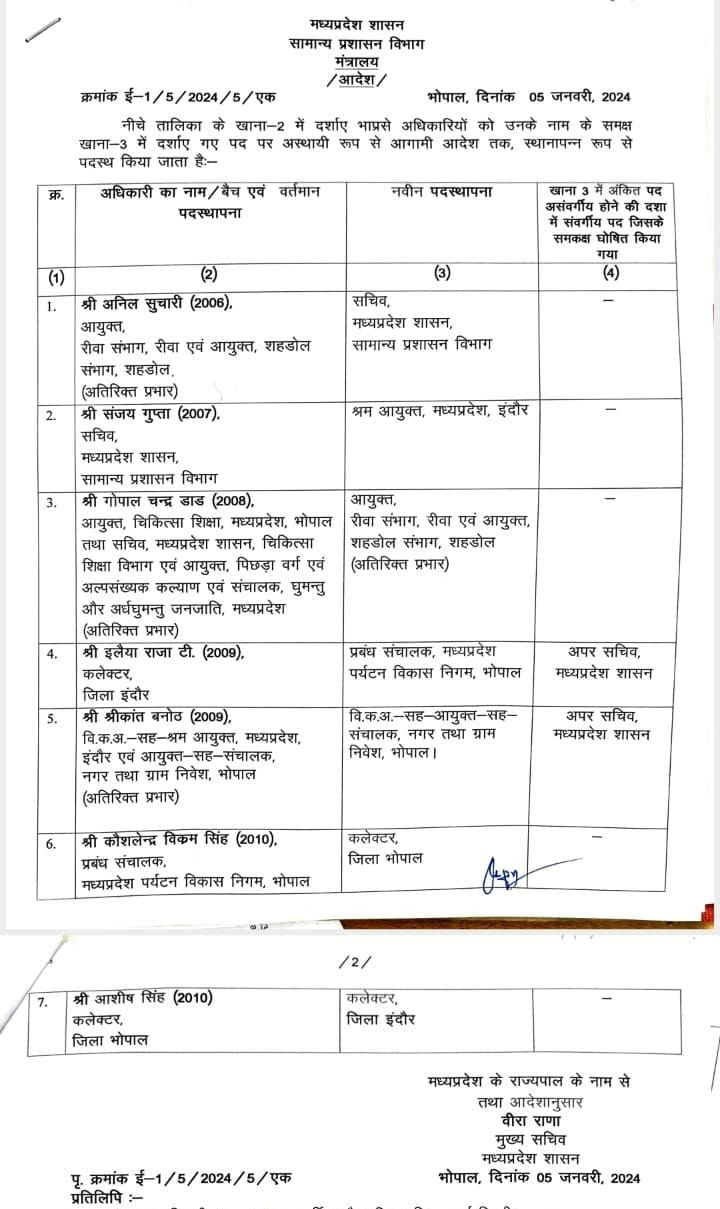 मध्यप्रदेश शासन
सामान्य प्रशासन विभाग
मंत्रालय
/आदेश/
क्रमांक ई–1/5/2024/5/एक भोपाल, दिनांक 05 जनवरी, 2024
नीचे तालिका के खाना–2 में दर्शाए भाप्रसे अधिकारियों को उनके नाम के समक्ष
खाना–3 में दर्शाए गए पद पर अस्थायी रूप से आगामी आदेश तक, स्थानापन्न रूप से
पदस्थ किया जाता हैः–
क्र. अधिकारी का नाम/बैच एवं वर्तमान पदस्थापना नवीन पदस्थापना खाना 3 में अंकित पद
असंवर्गीय होने की दशा
में संवर्गीय पद जिसके
समकक्ष घोषित किया
गया
(1) (2) (3) (4)
1. श्री अनिल सुचारी (2006),
आयुक्त,
रीवा संभाग, रीवा एवं आयुक्त, शहडोल
संभाग, शहडोल,
(अतिरिक्त प्रभार)
सचिव,
मध्यप्रदेश शासन,
सामान्य प्रशासन विभाग
–
2. श्री संजय गुप्ता (2007),
सचिव,
मध्यप्रदेश शासन,
सामान्य प्रशासन विभाग
श्रम आयुक्त, मध्यप्रदेश, इंदौर
–
3. श्री गोपाल चन्द्र डाड (2008),
आयुक्त, चिकित्सा शिक्षा, मध्यप्रदेश, भोपाल
तथा सचिव, मध्यप्रदेश शासन, चिकित्सा
शिक्षा विभाग एवं आयुक्त, पिछड़ा वर्ग एवं
अल्पसंख्यक कल्याण एवं संचालक, घुमन्तु
और अर्धघुमन्तु जनजाति, मध्यप्रदेश
(अतिरिक्त प्रभार)
आयुक्त,
रीवा संभाग, रीवा एवं आयुक्त,
शहडोल संभाग, शहडोल
(अतिरिक्त प्रभार)
–
4. श्री इलैया राजा टी. (2009),
कलेक्टर,
जिला इंदौर
प्रबंध संचालक, मध्यप्रदेश
पर्यटन विकास निगम, भोपाल
अपर सचिव,
मध्यप्रदेश शासन
5. श्री श्रीकांत बनोठ (2009),
वि.क.अ.–सह–श्रम आयुक्त, मध्यप्रदेश,
इंदौर एवं आयुक्त–सह–संचालक,
नगर तथा ग्राम निवेश, भोपाल
(अतिरिक्त प्रभार)
वि.क.अ.–सह–आयुक्त–सह–
संचालक, नगर तथा ग्राम
निवेश, भोपाल।
अपर सचिव,
मध्यप्रदेश शासन
6. श्री कौशलेन्द्र विकम सिंह (2010),
प्रबंध संचालक,
मध्यप्रदेश पर्यटन विकास निगम, भोपाल
कलेक्टर,
जिला भोपाल
–
/2/
7. श्री आशीष सिंह (2010)
कलेक्टर,
जिला भोपाल
कलेक्टर,
जिला इंदौर
–
मध्यप्रदेश के राज्यपाल के नाम से
तथा आदेशानुसार
वीरा राणा
मुख्य सचिव
मध्यप्रदेश शासन
पृ. क्रमांक ई–1/5/2024/5/एक भोपाल, दिनांक 05 जनवरी, 2024
प्रतिलिपि :–